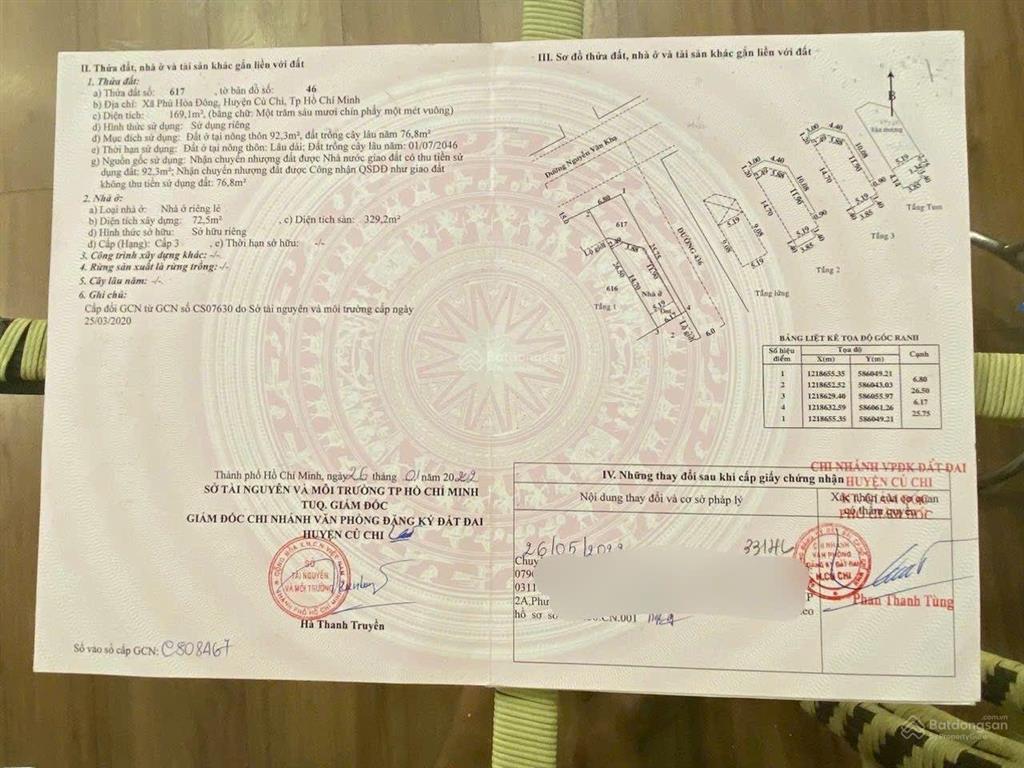 II. Thửa đất, nhà ở và tài sản khác gắn liền với đất
1. Thửa đất:
a) Thửa đất số: 617 , tờ bản đồ số: 46
b) Địa chỉ: Xã Phú Hòa Đông, Huyện Củ Chi, Tp Hồ Chí Minh
c) Diện tích: 169,1m², (bằng chữ: Một trăm sáu mươi chín phẩy một mét vuông)
d) Hình thức sử dụng: Sử dụng riêng
đ) Mục đích sử dụng: Đất ở tại nông thôn 92,3m², đất trồng cây lâu năm 76,8m²
e) Thời hạn sử dụng: Đất ở tại nông thôn: Lâu dài; Đất trồng cây lâu năm: 01/07/2046
g) Nguồn gốc sử dụng: Nhận chuyển nhượng đất được Nhà nước giao đất có thu tiền sử
dụng đất: 92,3m²; Nhận chuyển nhượng đất được Công nhận QSDĐ như giao đất
không thu tiền sử dụng đất: 76,8m²
2. Nhà ở:
a) Loại nhà ở: Nhà ở riêng lẻ
b) Diện tích xây dựng: 72,5m² , c) Diện tích sàn: 329,2m²
d) Hình thức sở hữu: Sở hữu riêng
đ) Cấp (Hạng): Cấp 3 , e) Thời hạn sở hữu: -/-
3. Công trình xây dựng khác: -/-
4. Rừng sản xuất là rừng trồng:-/-
5. Cây lâu năm: -/-.
6. Ghi chú:
Cấp đổi GCN từ GCN số CS07630 do Sở tài nguyên và môi trường cấp ngày
25/03/2020
Thành phố Hồ Chí Minh, ngày 26 tháng 01 năm 2022
SỞ TÀI NGUYÊN VÀ MÔI TRƯỜNG TP HỒ CHÍ MINH
TUQ. GIÁM ĐỐC
GIÁM ĐỐC CHI NHÁNH VĂN PHÒNG ĐĂNG KÝ ĐẤT ĐAI
HUYỆN CỦ CHI
SỞ
TÀI NGUYÊN
VÀ MÔI TRƯỜNG
Hà Thanh Truyền
Số vào sổ cấp GCN: CS08467
III. Sơ đồ thửa đất, nhà ở và tài sản khác gắn liền với đất
B
Đường Nguyễn Văn Khạ
ĐƯỜNG 436
6.80
15.0
1
2
617
Lộ giới
2.89
3.88
25.75
11.90
14.70
26.50
616
Nhà ở
5.19
6.17
3
4
Lộ giới
6.0
Tầng 1
5.19
9.08
9.08
5.19
Tầng lửng
3.00
4.40
3.88
10.08
11.90
14.70
0.90
5.19
1.40
3.85
Tầng 2
3.00
4.40
3.88
10.08
11.90
14.70
0.90
5.19
1.40
3.85
Tầng 3
Sân thượng
5.19
Tầng Tum
BẢNG LIỆT KÊ TỌA ĐỘ GÓC RANH
Số hiệu điểm Tọa độ Cạnh
X(m) Y(m)
1 1218655.35 586049.21
6.80
2 1218652.52 586043.03
26.50
3 1218629.40 586055.97
6.17
4 1218632.59 586061.26
25.75
1 1218655.35 586049.21
IV. Những thay đổi sau khi cấp giấy chứng nhận
Nội dung thay đổi và cơ sở pháp lý
Xác nhận của cơ quan
có thẩm quyền
CHI NHÁNH VPĐK ĐẤT ĐAI
HUYỆN CỦ CHI
PHÓ GIÁM ĐỐC
26/05/2022
Chuy
079
0311
2A,Phư
hồ sơ số .CN.001
CHI NHÁNH
VĂN PHÒNG
ĐĂNG KÝ ĐẤT ĐAI
H.CỦ CHI
Phan Thanh Tùng
Batdongsan
Batdongsan
.com.vn
by PropertyGuru